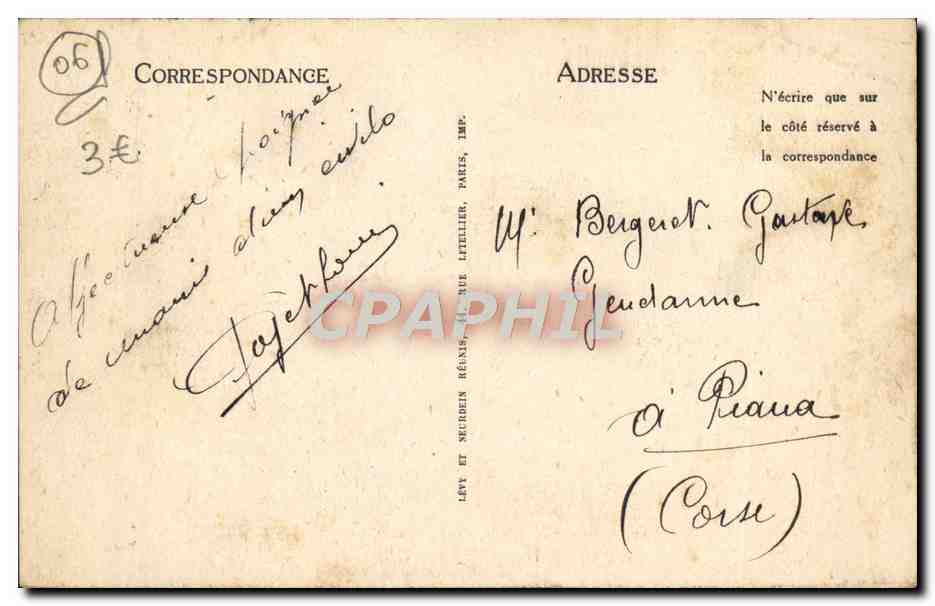 06
3€
CORRESPONDANCE
Affectueuse poignée
de main
ADRESSE
N'écrire que sur
le côté réservé à
la correspondance
Mr Bergeret Gustave
Gendarme
à Piana
(Corse)
LÉVY ET NEURDEIN RÉUNIS, 44, RUE LETELLIER, PARIS, IMP.
CPAPHIL